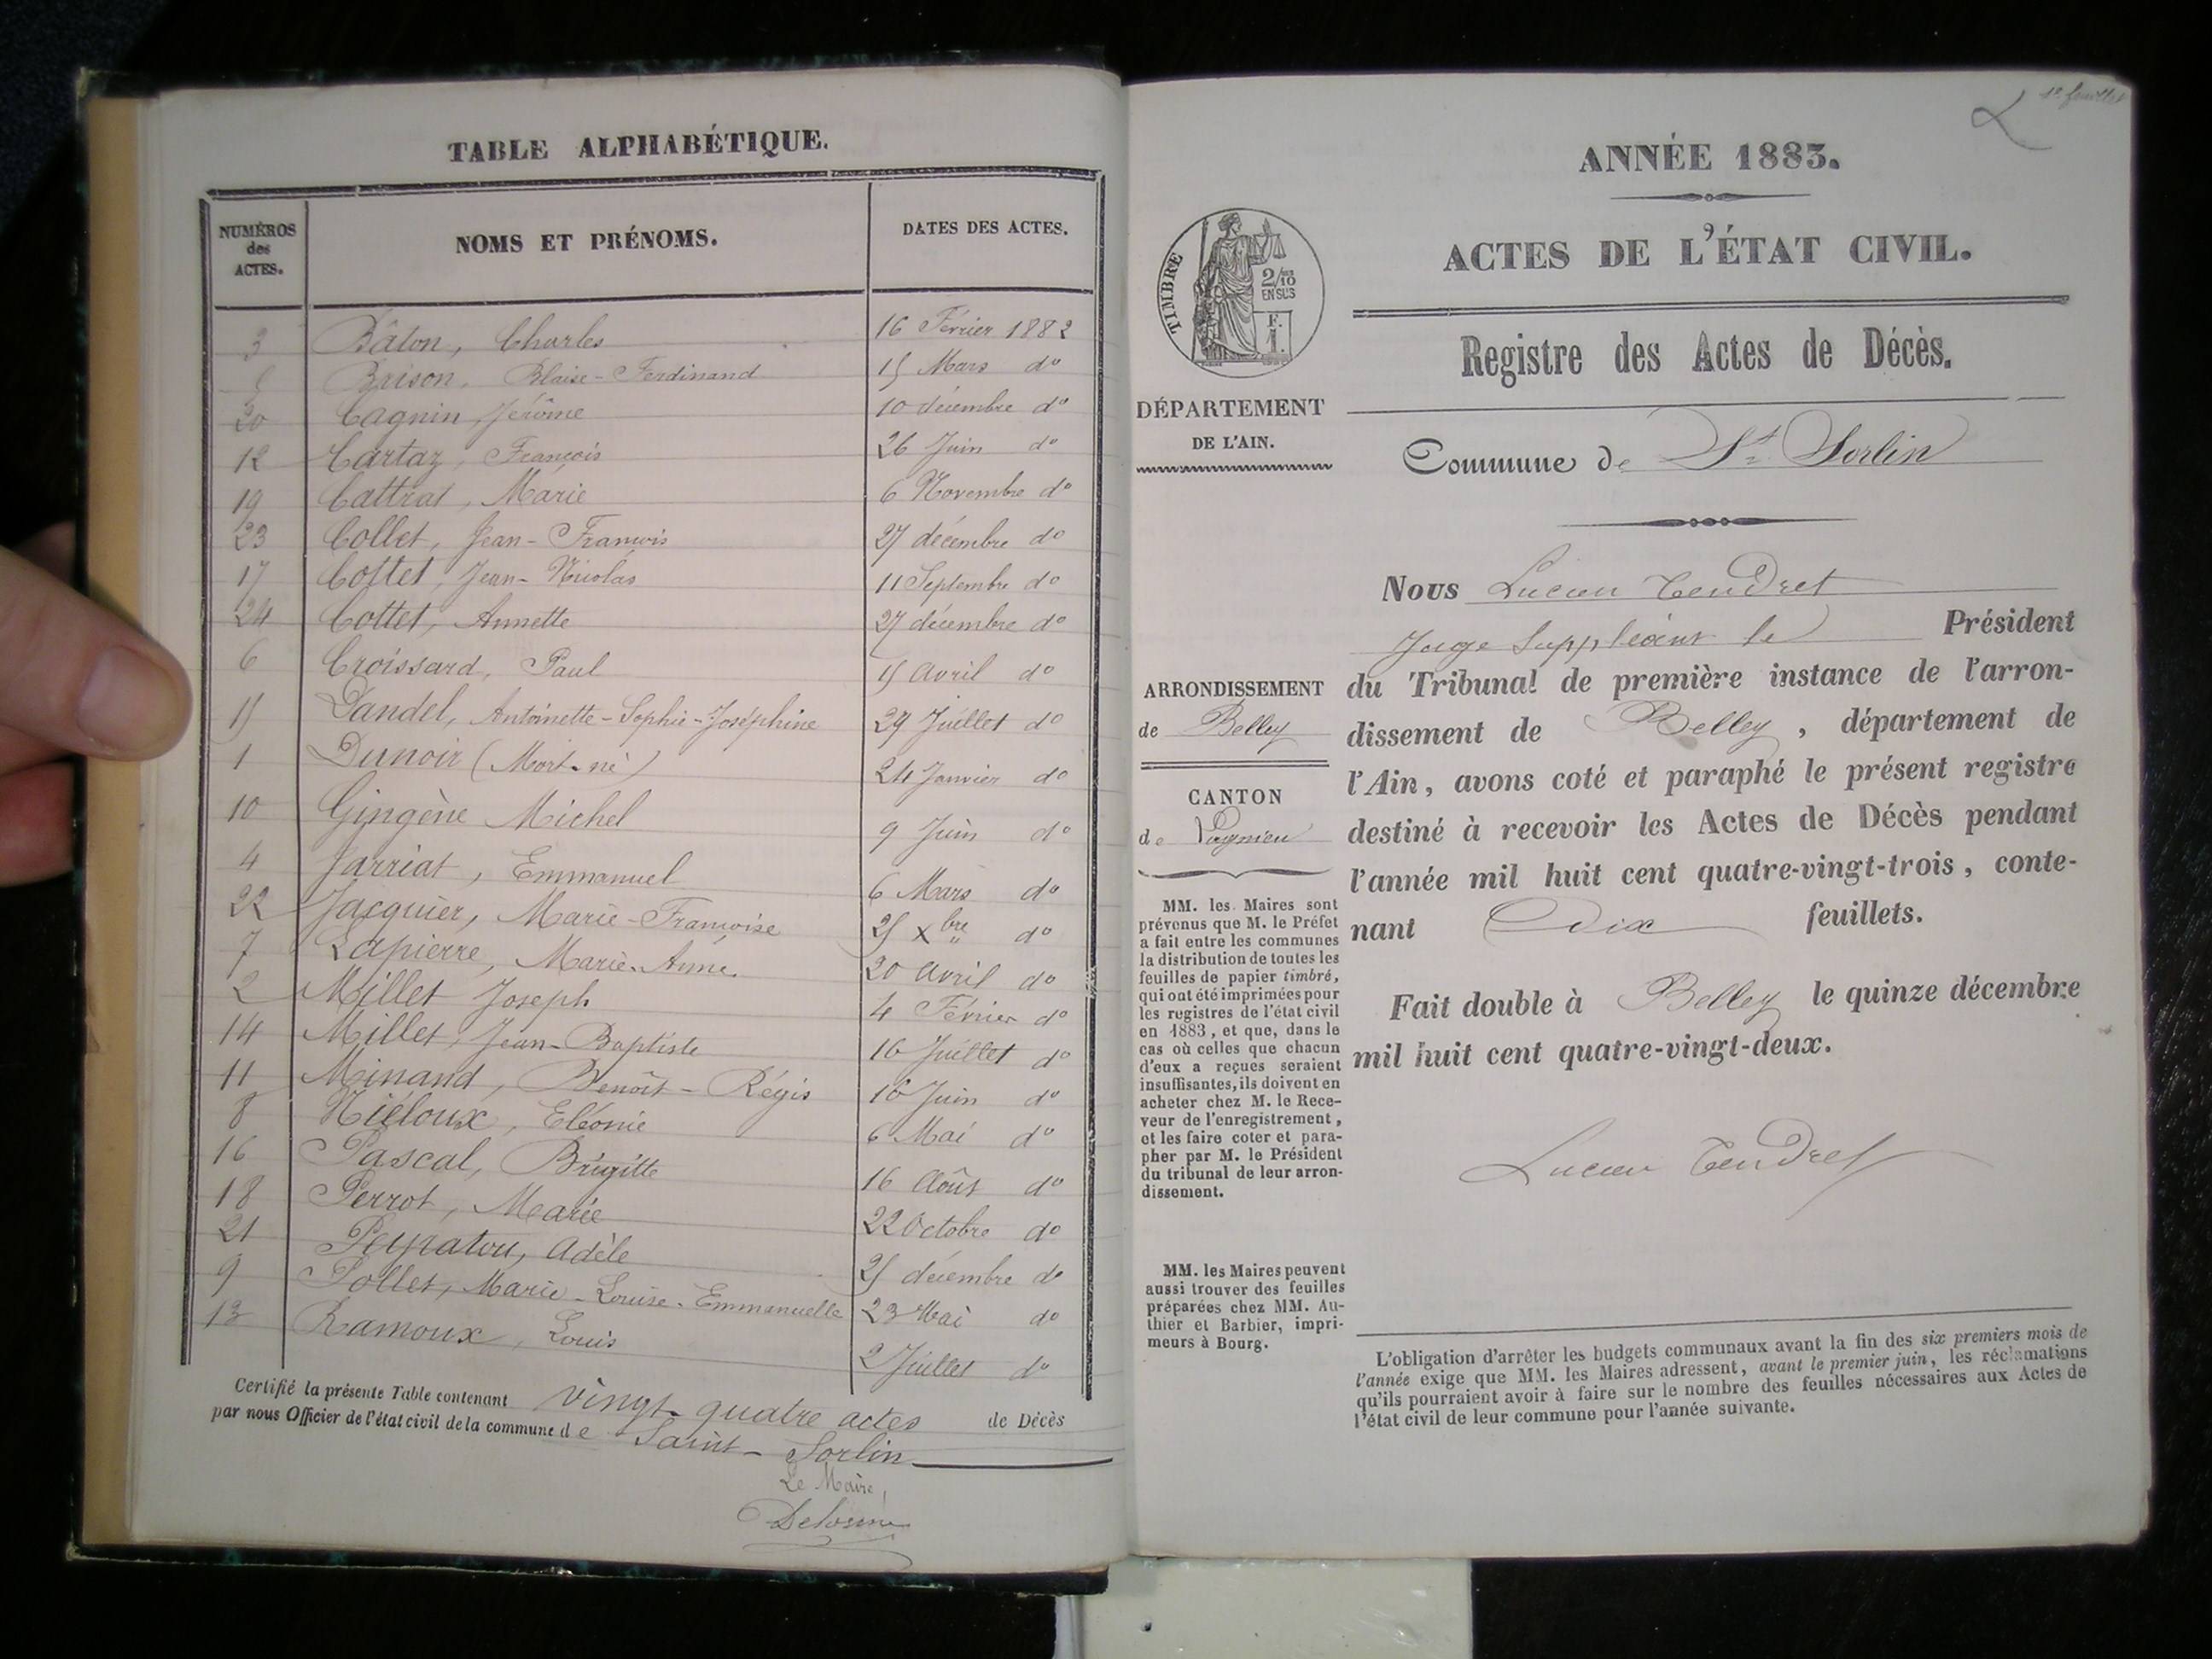 TABLE ALPHABÉTIQUE.
NUMÉROS des ACTES. NOMS ET PRÉNOMS. DATES DES ACTES.
3 Bâton, Charles 16 Février 1882
5 Brison, Blaise-Ferdinand 15 Mars do
20 Cagnin, Jérôme 10 décembre do
12 Cartaz, François 26 Juin do
19 Cattrat, Marie 6 Novembre do
23 Collet, Jean-François 27 décembre do
17 Cottet, Jean-Nicolas 11 Septembre do
24 Cottet, Annette 27 décembre do
6 Croissard, Paul 15 avril do
15 Dandel, Antoinette-Sophie-Joséphine 29 Juillet do
1 Dunoir (Mort-né) 24 Janvier do
10 Gingène Michel 9 Juin do
4 Jarriat, Emmanuel 6 Mars do
22 Jacquier, Marie-Françoise 25 Xbre do
7 Lapierre, Marie-Anne 20 avril do
2 Millet Joseph 4 Février do
14 Millet, Jean-Baptiste 16 Juillet do
11 Minand, Benoît-Régis 16 Juin do
8 Niéloux, Eléonie 6 Mai do
16 Pascal, Brigitte 16 Août do
18 Perrot, Marie 22 Octobre do
21 Peyratou, Adèle 25 décembre do
9 Pollet, Marie-Louise-Emmanuelle 23 Mai do
13 Ramoux, Louis 2 Juillet do
Certifié la présente Table contenant vingt-quatre actes de Décès
par nous Officier de l'état civil de la commune de Saint-Sorlin
Le Maire,
1er feuillet
ANNÉE 1883.
ACTES DE L'ÉTAT CIVIL.
TIMBRE
2/10
EN SUS
F.
1.
Registre des Actes de Décès.
DÉPARTEMENT
DE L'AIN.
Commune de St Sorlin
ARRONDISSEMENT
de Belley
CANTON
de Lagnieu
MM. les Maires sont
prévenus que M. le Préfet
a fait entre les communes
la distribution de toutes les
feuilles de papier timbré,
qui ont été imprimées pour
les registres de l'état civil
en 1883, et que, dans le
cas où celles que chacun
d'eux a reçues seraient
insuffisantes, ils doivent en
acheter chez M. le Rece-
veur de l'enregistrement,
et les faire coter et para-
pher par M. le Président
du tribunal de leur arron-
dissement.
MM. les Maires peuvent
aussi trouver des feuilles
préparées chez MM. Au-
thier et Barbier, impri-
meurs à Bourg.
Nous Lucien Tendret
Juge Suppléant le Président
du Tribunal de première instance de l'arron-
dissement de Belley, département de
l'Ain, avons coté et paraphé le présent registre
destiné à recevoir les Actes de Décès pendant
l'année mil huit cent quatre-vingt-trois, conte-
nant dix feuillets.
Fait double à Belley le quinze décembre
mil huit cent quatre-vingt-deux.
Lucien Tendret
L'obligation d'arrêter les budgets communaux avant la fin des six premiers mois de
l'année exige que MM. les Maires adressent, avant le premier juin, les réclamations
qu'ils pourraient avoir à faire sur le nombre des feuilles nécessaires aux Actes de
l'état civil de leur commune pour l'année suivante.